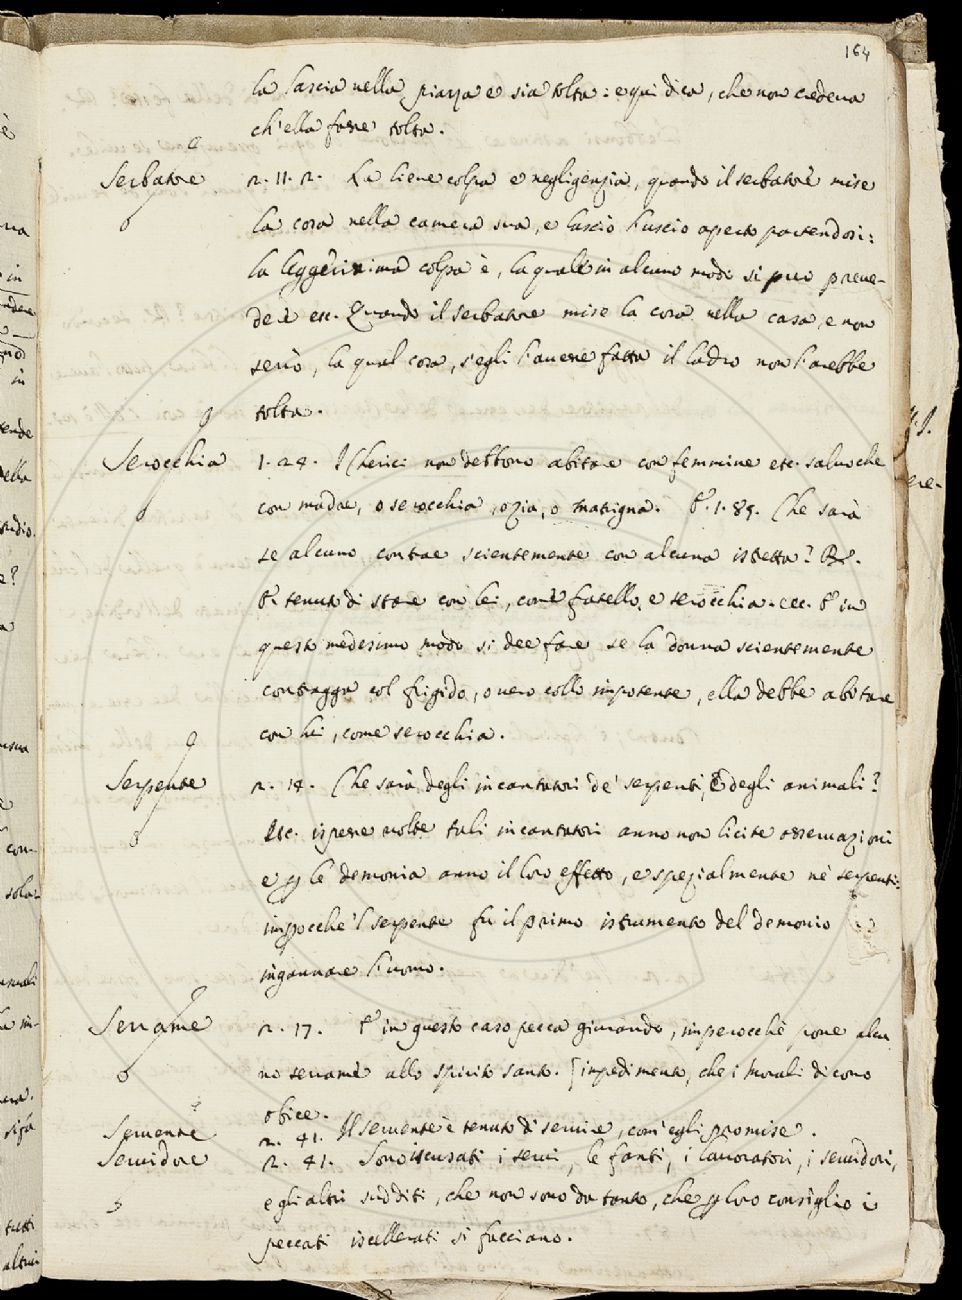 164
la lascia nella piazza e sia tolta: e qui dica, che non credeva
ch'ella fosse tolta.
Serbatore 2. 11. 2. La lieve colpa e negligenzia, quando il serbatore mise
la cosa nella camera sua, e lasciò l'uscio aperto partendosi:
la leggerissima colpa è, la quale in alcuno modo si può preve-
dere etc. Quando il serbatore mise la cosa nella casa, e non
serrò, la qual cosa, s'egli l'avesse fatta il ladro non l'arebbe
tolta.
Serocchia 1. 24. I Cherici non debbono abitare con femmine etc. salvo che
con madre, o serocchia, o zia, o matrigna. E 1. 89. Che sarà
se alcuno contrae scientemente con alcuna istretta? R.
È tenuto di stare con lei, come fratello, e serocchia. ecc. E in
questo medesimo modo si dee fare se la donna scientemente
contragga col frigido, o vero collo impotente, ella debbe abitare
con lui, come serocchia.
Serpente 2. 14. Che sarà degli incantatori de' serpenti, e degli animali?
Etc. ispesse volte tali incantatori anno non licite osservazioni
e p le demonia anno il loro effetto, e spezialmente ne' serpenti:
impocchè 'l serpente fu il primo istrumento del demonio
ingannare l'uomo.
Serrame 2. 17. E in questo caso pecca giurando, imperocchè pone alcu
no serrame allo spirito santo. [impedimento, che i Morali dicono
obice.
Servente 2. 41. Il servente è tenuto di servire, com'egli promise.
Servidore 2. 41. Sono iscusati i servi, le fanti, i lavoratori, i servidori,
e gli altri sudditi, che non sono da tanto, che p loro consiglio i
peccati iscellerati si facciano.